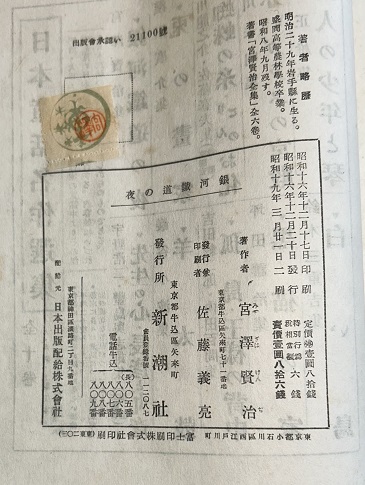 著者略歴
明治二十九年岩手縣に生る。
盛岡高等農林學校卒業。
昭和八年九月歿す。
著書「宮澤賢治全集」全六卷。
出版會承認い 21100號
銀河鐵道の夜
昭和十六年十二月十七日印刷
昭和十六年十二月二十日發行
昭和十九年三月廿一日二刷
定價㊞壹圓八拾錢
特別行爲税相當額 六錢
賣價壹圓八拾六錢
著作者 宮澤賢治
みやざはけんぢ
東京都牛込區矢來町七十一番地
發行兼印刷者 佐藤義亮
東京都牛込區矢來町
發行所 新潮社
會員登錄番號 一一二〇八七
電話牛込
(長)八〇五番
八〇六番
八〇七番
八〇八番
八〇九番
東京都神田區淡路町二丁目九番地
配給元 日本出版配給株式會社
東京都小石川區西江戸川町 富士印刷株式會社印刷 (東東二〇三)